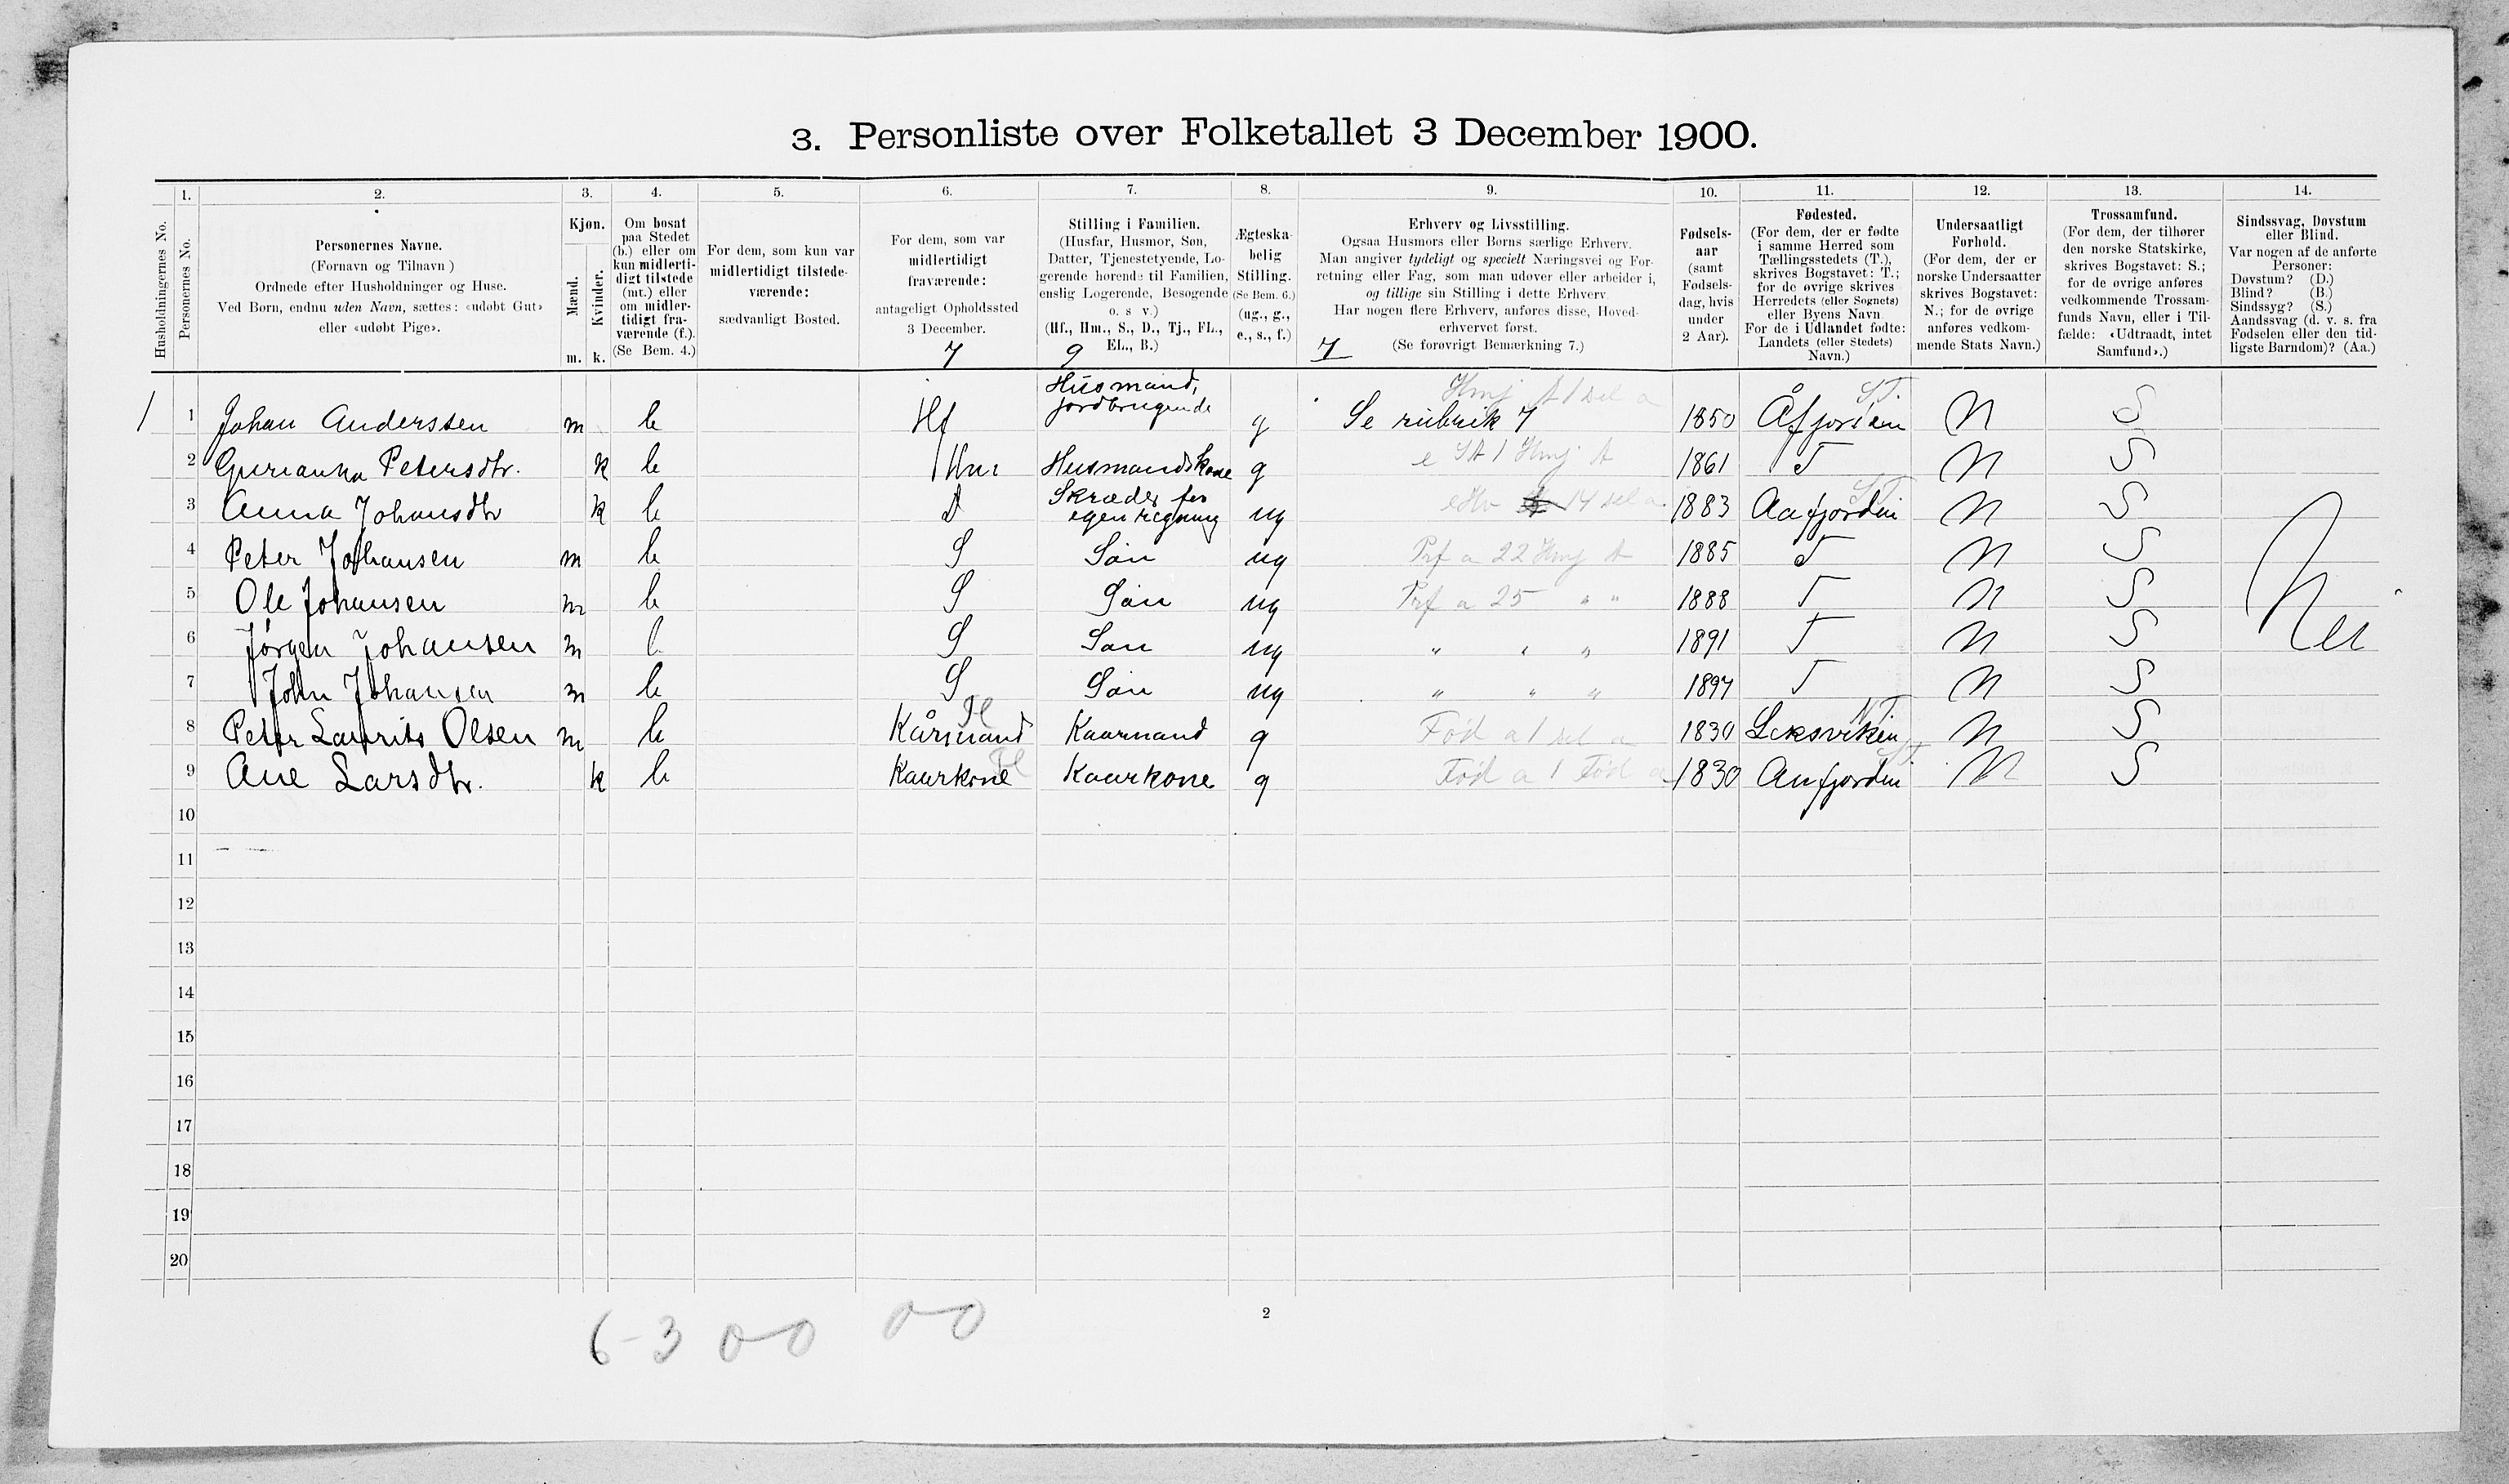 3. Personliste over Folketallet 3 December 1900.
1. 2. 3. 4. 5. 6. 7. 8. 9. 10. 11. 12. 13. 14.
Husholdningernes No.
Personernes No.
Personernes Navne.
(Fornavn og Tilnavn)
Ordnede efter Husholdninger og Huse.
Ved Børn, endnu uden Navn, sættes: «udøbt Gut»
eller «udøbt Pige».
Kjøn.
Mænd.
Kvinder.
m. k.
Om bosat
paa Stedet
(b.) eller om
kun midlerti-
digt tilstede
(mt.) eller
om midler-
tidigt fra-
værende (f.).
(Se Bem. 4.)
For dem, som kun var
midlertidigt tilstede-
værende:
sædvanligt Bosted.
For dem, som var
midlertidigt
fraværende:
antageligt Opholdssted
3 December.
7
Stilling i Familien.
(Husfar, Husmor, Søn,
Datter, Tjenestetyende, Lo-
gerende hørende til Familien,
enslig Logerende, Besøgende
o. s v.)
(Hf., Hm., S., D., Tj., FL.,
EL., B.)
9
Ægteska-
belig
Stilling.
(Se Bem. 6.)
(ug., g.,
e., s., f.)
Erhverv og Livsstilling.
Ogsaa Husmors eller Børns særlige Erhverv.
Man angiver tydeligt og specielt Næringsvei og For-
retning eller Fag, som man udøver eller arbeider i,
og tillige sin Stilling i dette Erhverv.
Har nogen flere Erhverv, anføres disse, Hoved-
erhvervet først.
(Se forøvrigt Bemærkning 7.)
7
Fødsels-
aar
(samt
Fødsels-
dag, hvis
under
2 Aar).
Fødested.
(For dem, der er fødte
i samme Herred som
Tællingsstedets (T.),
skrives Bogstavet: T.;
for de øvrige skrives
Herredets (eller Sognets)
eller Byens Navn.
For de i Udlandet fødte:
Landets (eller Stedets)
Navn.)
Undersaatligt
Forhold.
(For dem, der er
norske Undersaatter
skrives Bogstavet:
N.; for de øvrige
anføres vedkom-
mende Stats Navn.)
Trossamfund.
(For dem, der tilhører
den norske Statskirke,
skrives Bogstavet: S.;
for de øvrige anføres
vedkommende Trossam-
funds Navn, eller i Til-
fælde: «Udtraadt, intet
Samfund».)
Sindssvag, Døvstum
eller Blind.
Var nogen af de anførte
Personer:
Døvstum? (D.)
Blind? (B.)
Sindssyg? (S.)
Aandssvag (d. v. s. fra
Fødselen eller den tid-
ligste Barndom)? (Aa.)
1 1 Johan Anderssen m b Hf Husmand, jordbrugende g Se rubrik 7 1850 Åfjorden N S
2 Gurianna Petersdtr. k b Hm Husmandskone g 1861 T N S
3 Anna Johansdtr k b D Skræder for egen regning ug 1883 Aafjorden N S
4 Peter Johansen m b S Søn ug Prf a 22 Hmj A 1885 T N S
5 Ole Johansen m b S Søn ug Prf a 25 " " 1888 T N S
6 Jørgen Johansen m b S Søn ug " " " 1891 T N S
7 John Johansen m b S Søn ug " " " 1897 T N S
8 Peter Laurits Olsen m b Kårmand Kaarmand g 1830 Leksviken N S
9 Ane Larsdtr. k b Kaarkone Kaarkone g 1830 Aafjorden N S
Nei
10
11
12
13
14
15
16
17
18
19
20
2
6-3 0-0 0-0